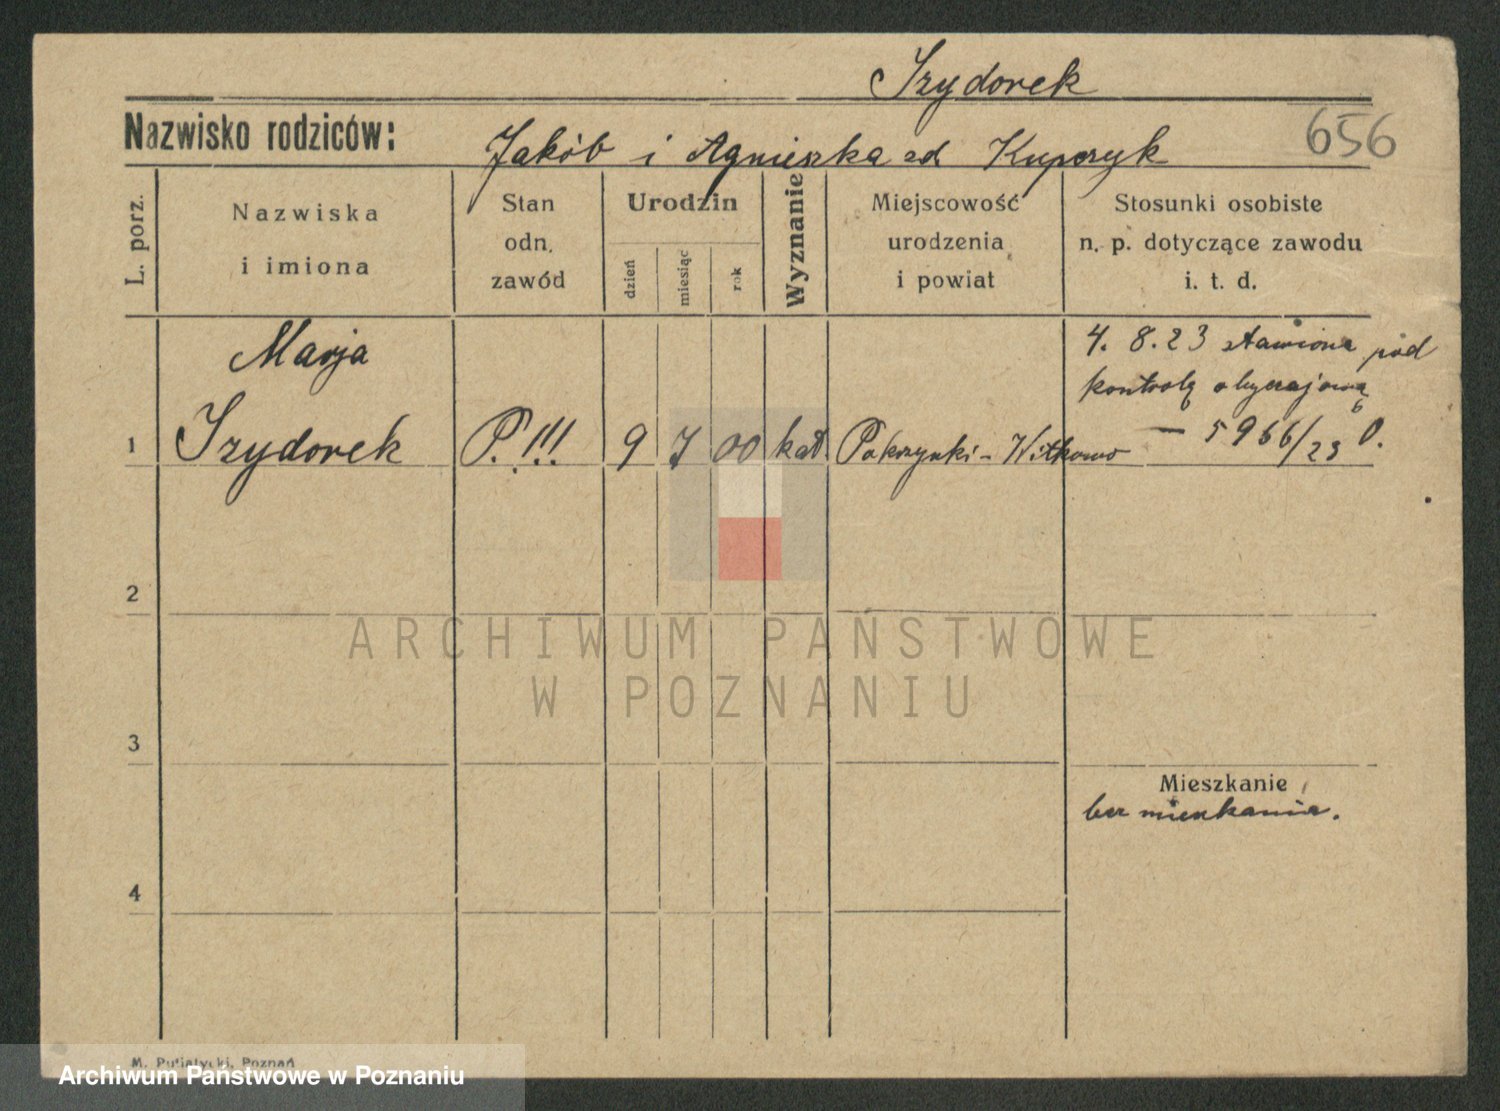 Izydorek
Nazwisko rodziców: Jakób i Agnieszka zd Kupczyk
656
L. porz.
Nazwiska
i imiona
Stan
odn.
zawód
Urodzin
dzień
miesiąc
rok
Wyznanie
Miejscowość
urodzenia
i powiat
Stosunki osobiste
n. p. dotyczące zawodu
i. t. d.
Marja
1 Izydorek P.!!! 9 7 00 kat. Witkowo
4. 8. 23 stawiona pod
kontrolę obyczajową
— 5966/23 O.
2
3
4
Mieszkanie
bez mieszkania.
ARCHIWUM PAŃSTWOWE
W POZNANIU
M. Putiatycki, Poznań
Archiwum Państwowe w Poznaniu